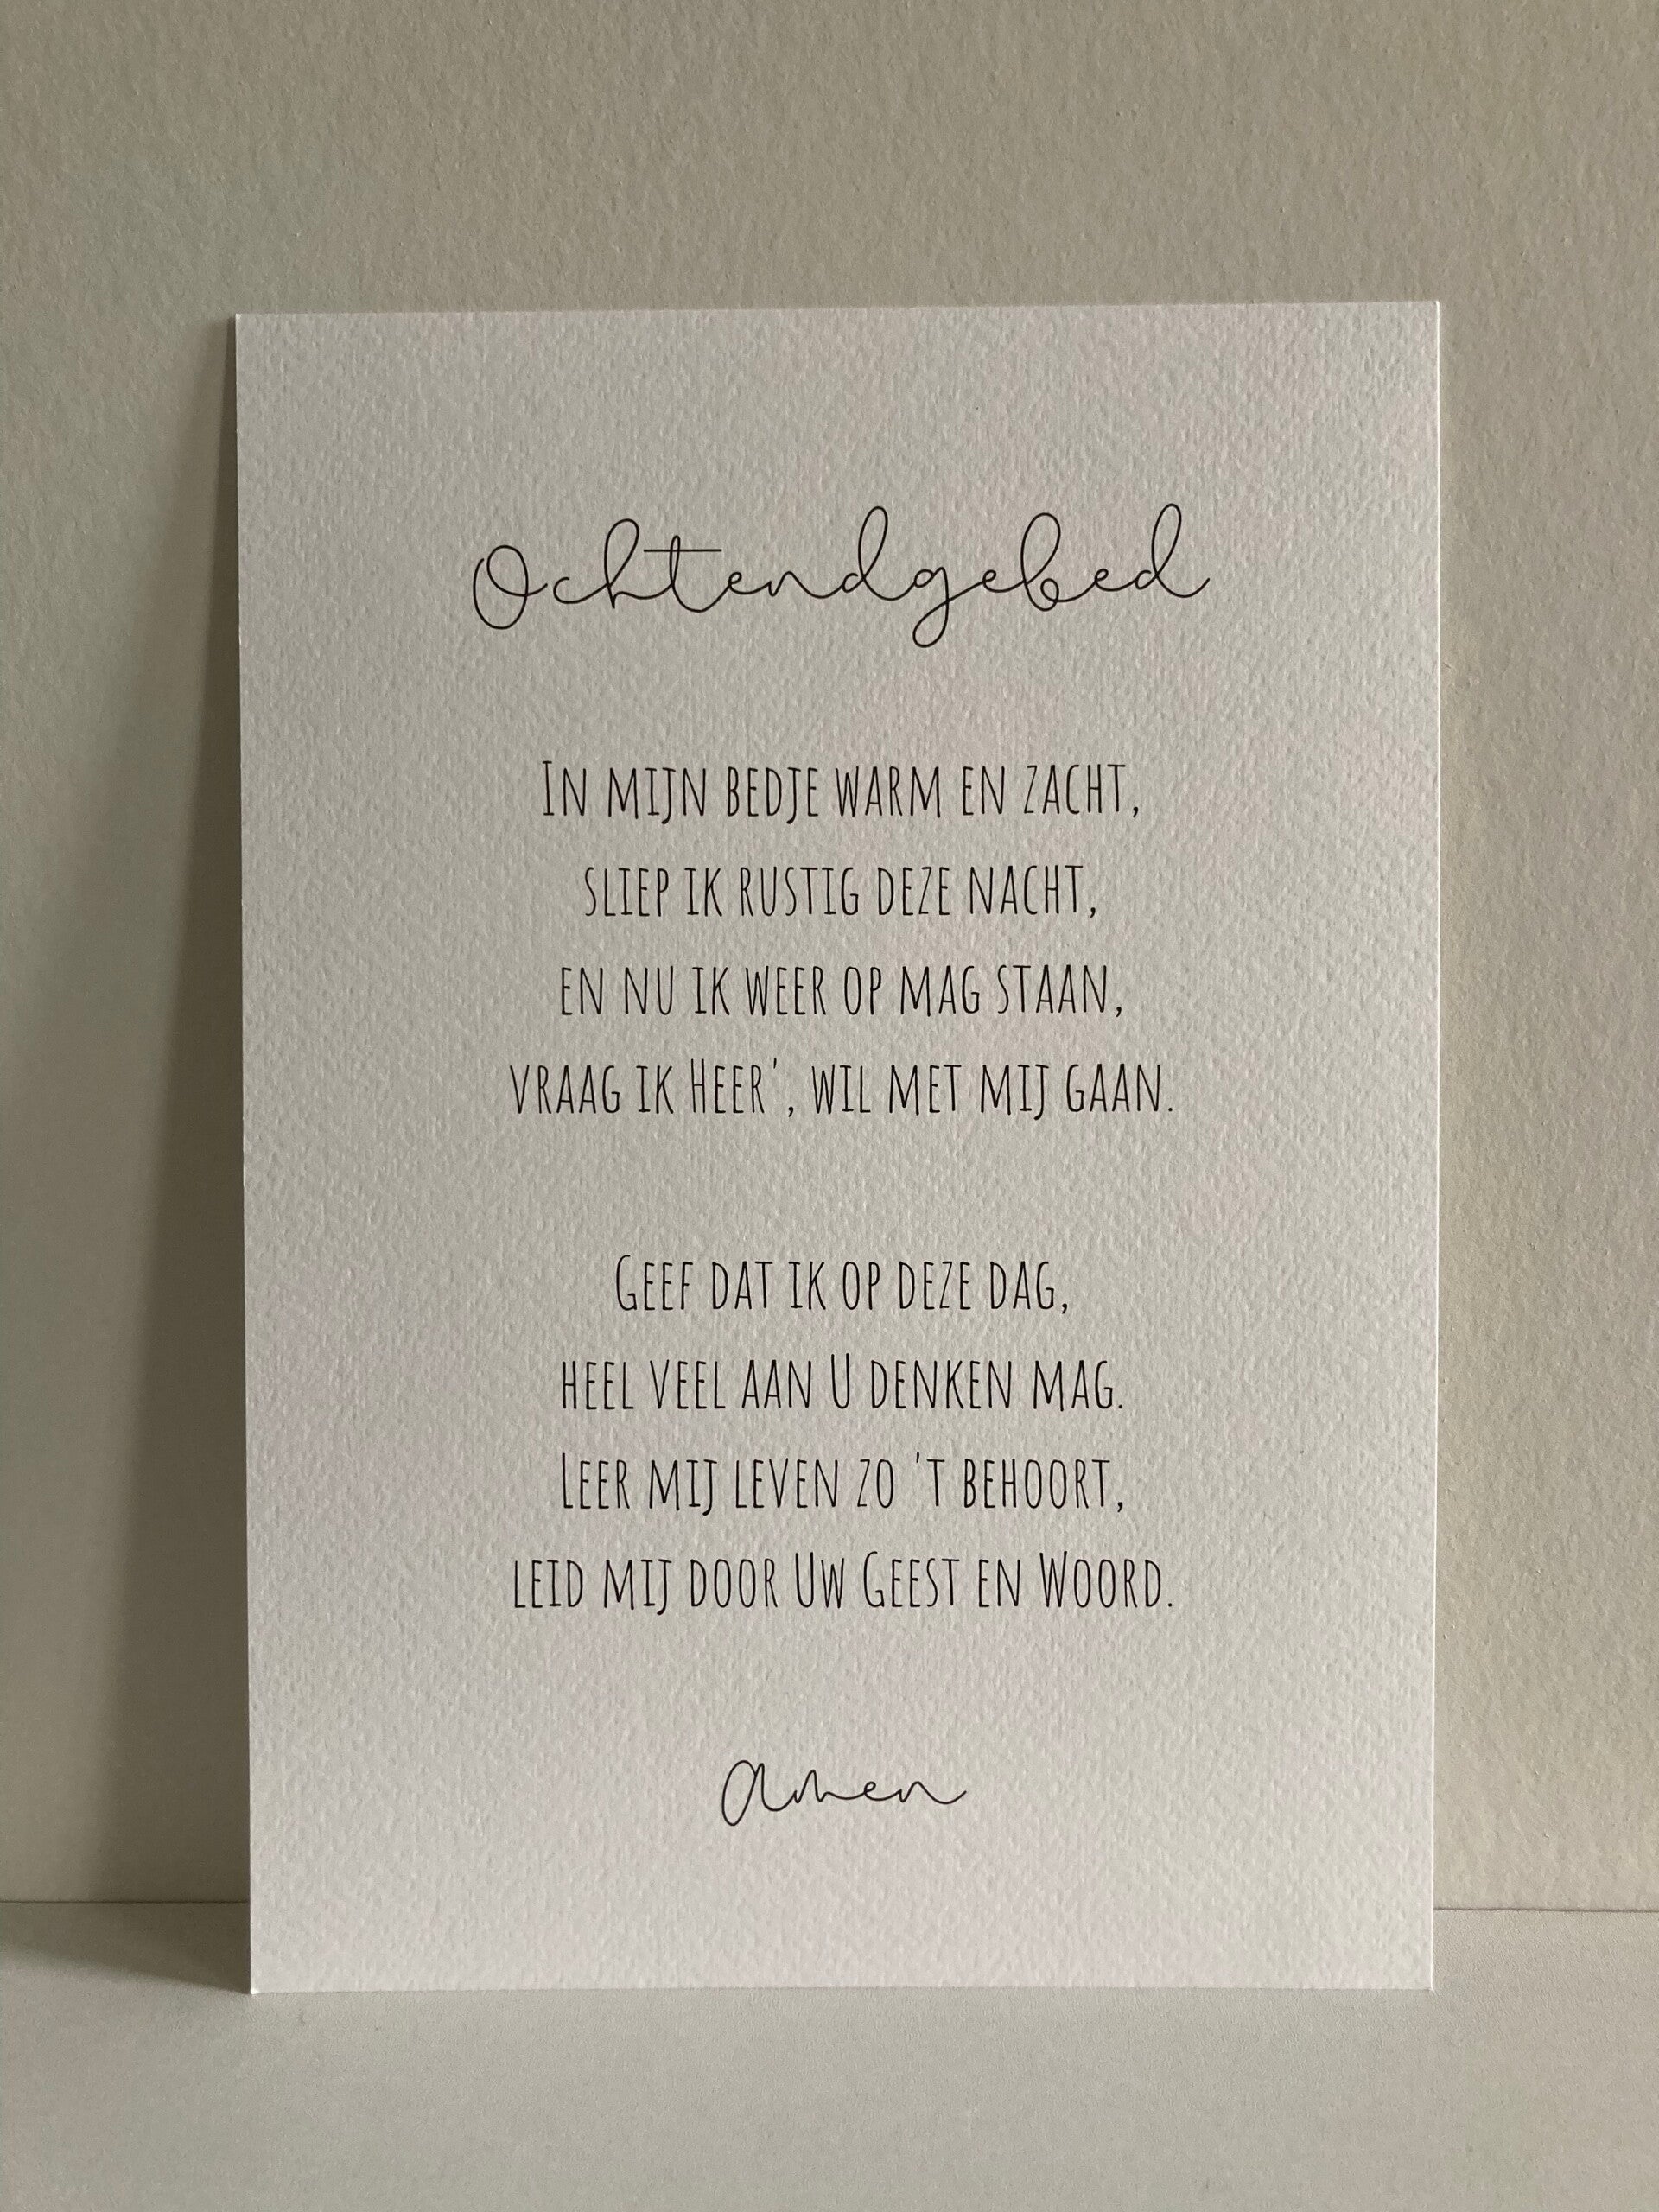 Ochtendgebed
In mijn bedje warm en zacht,
sliep ik rustig deze nacht,
en nu ik weer op mag staan,
vraag ik Heer', wil met mij gaan.
Geef dat ik op deze dag,
heel veel aan U denken mag.
Leer mij leven zo 't behoort,
leid mij door Uw Geest en Woord.
Amen